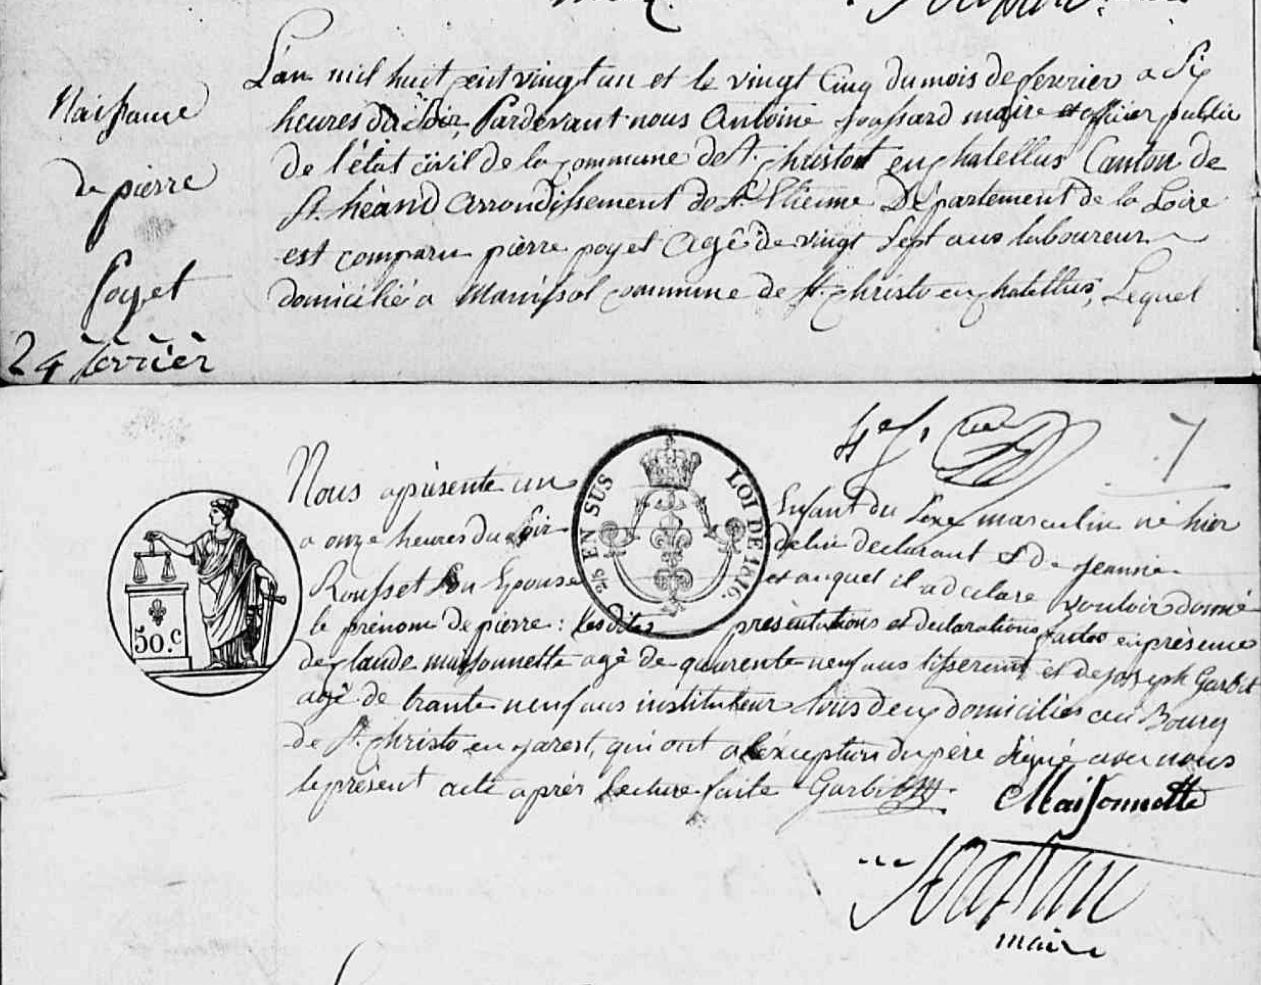 Naissance
de pierre
Poyet
24 fevrièr
L'an mil huit cent vingt un et le vingt Cinq du mois de fevrier a Six
heures du Soir, Pardevant nous Antoine Joassard maire et officier public
de l'état civil de la commune de St. christo en chatellus Canton de
St. héand arrondissement de St. Etienne Département de la Loire
est comparu pièrre poyet agé de vingt Sept ans laboureur
domicilié a Manissol commune de St. christo en chatellus, Lequel
4e f.
7
Nous a présenté un Enfant du Sexe masculin né hier
a onze heures du Soir de lui declarant & de jeanne
Rousset Son Epouse et auquel il a declaré vouloir donné
le prénom de pierre : lesdites présentations et declarations faites en présence
de claude maisonnette agé de quarente neuf ans tisserand et de joseph Garbit
agé de trante neuf ans instituteur tous deux domiciliés au Bourg
de St. christo en jarest, qui ont a l'éxception du père signé avec nous
le présent acte aprés lecture faite Garbit Maisonnette
maire
50. C
2/5 EN SUS LOI DE 1816.